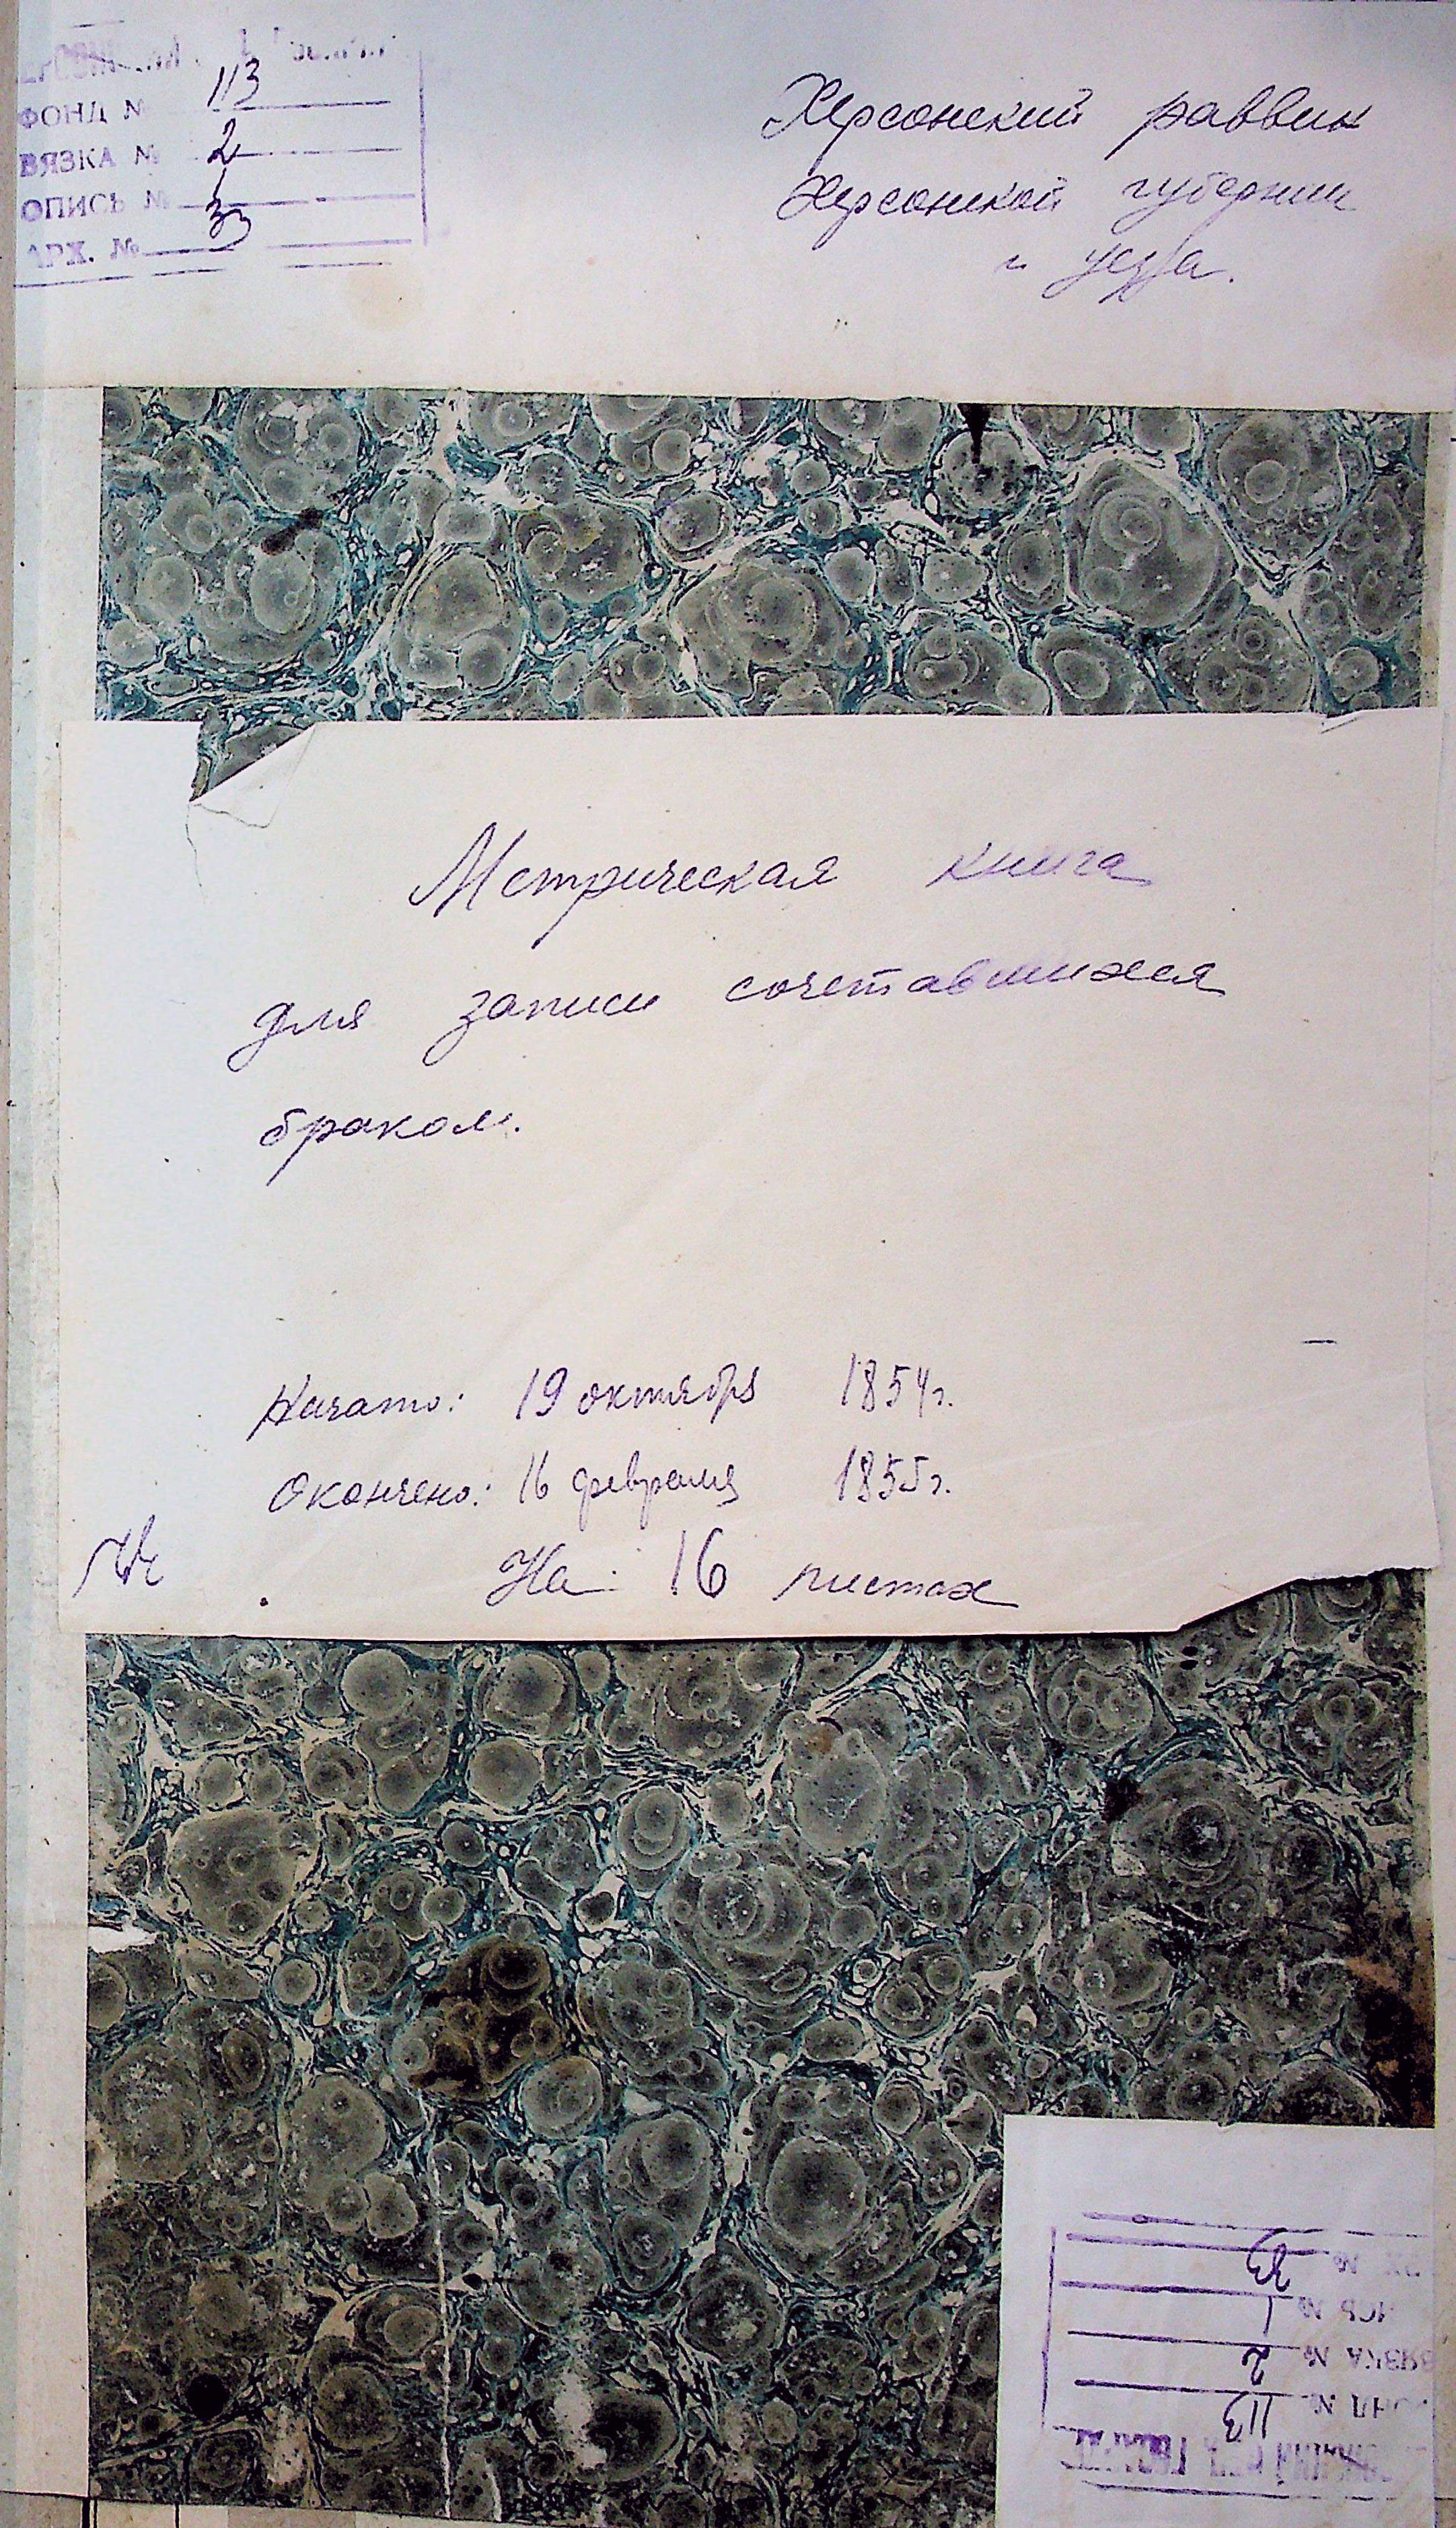 ФОНД № 113
ВЯЗКА № 2
ОПИСЬ № 1
АРХ. № 33
Херсонский раввин
Херсонской губернии
и уезда.
Метрическая книга
для записи сочетавшихся
браком.
Начато: 19 октября 1854 г.
Окончено: 16 февраля 1855 г.
На 16 листах
33
1
ВЯЗКА № 2
ФОНД № 113